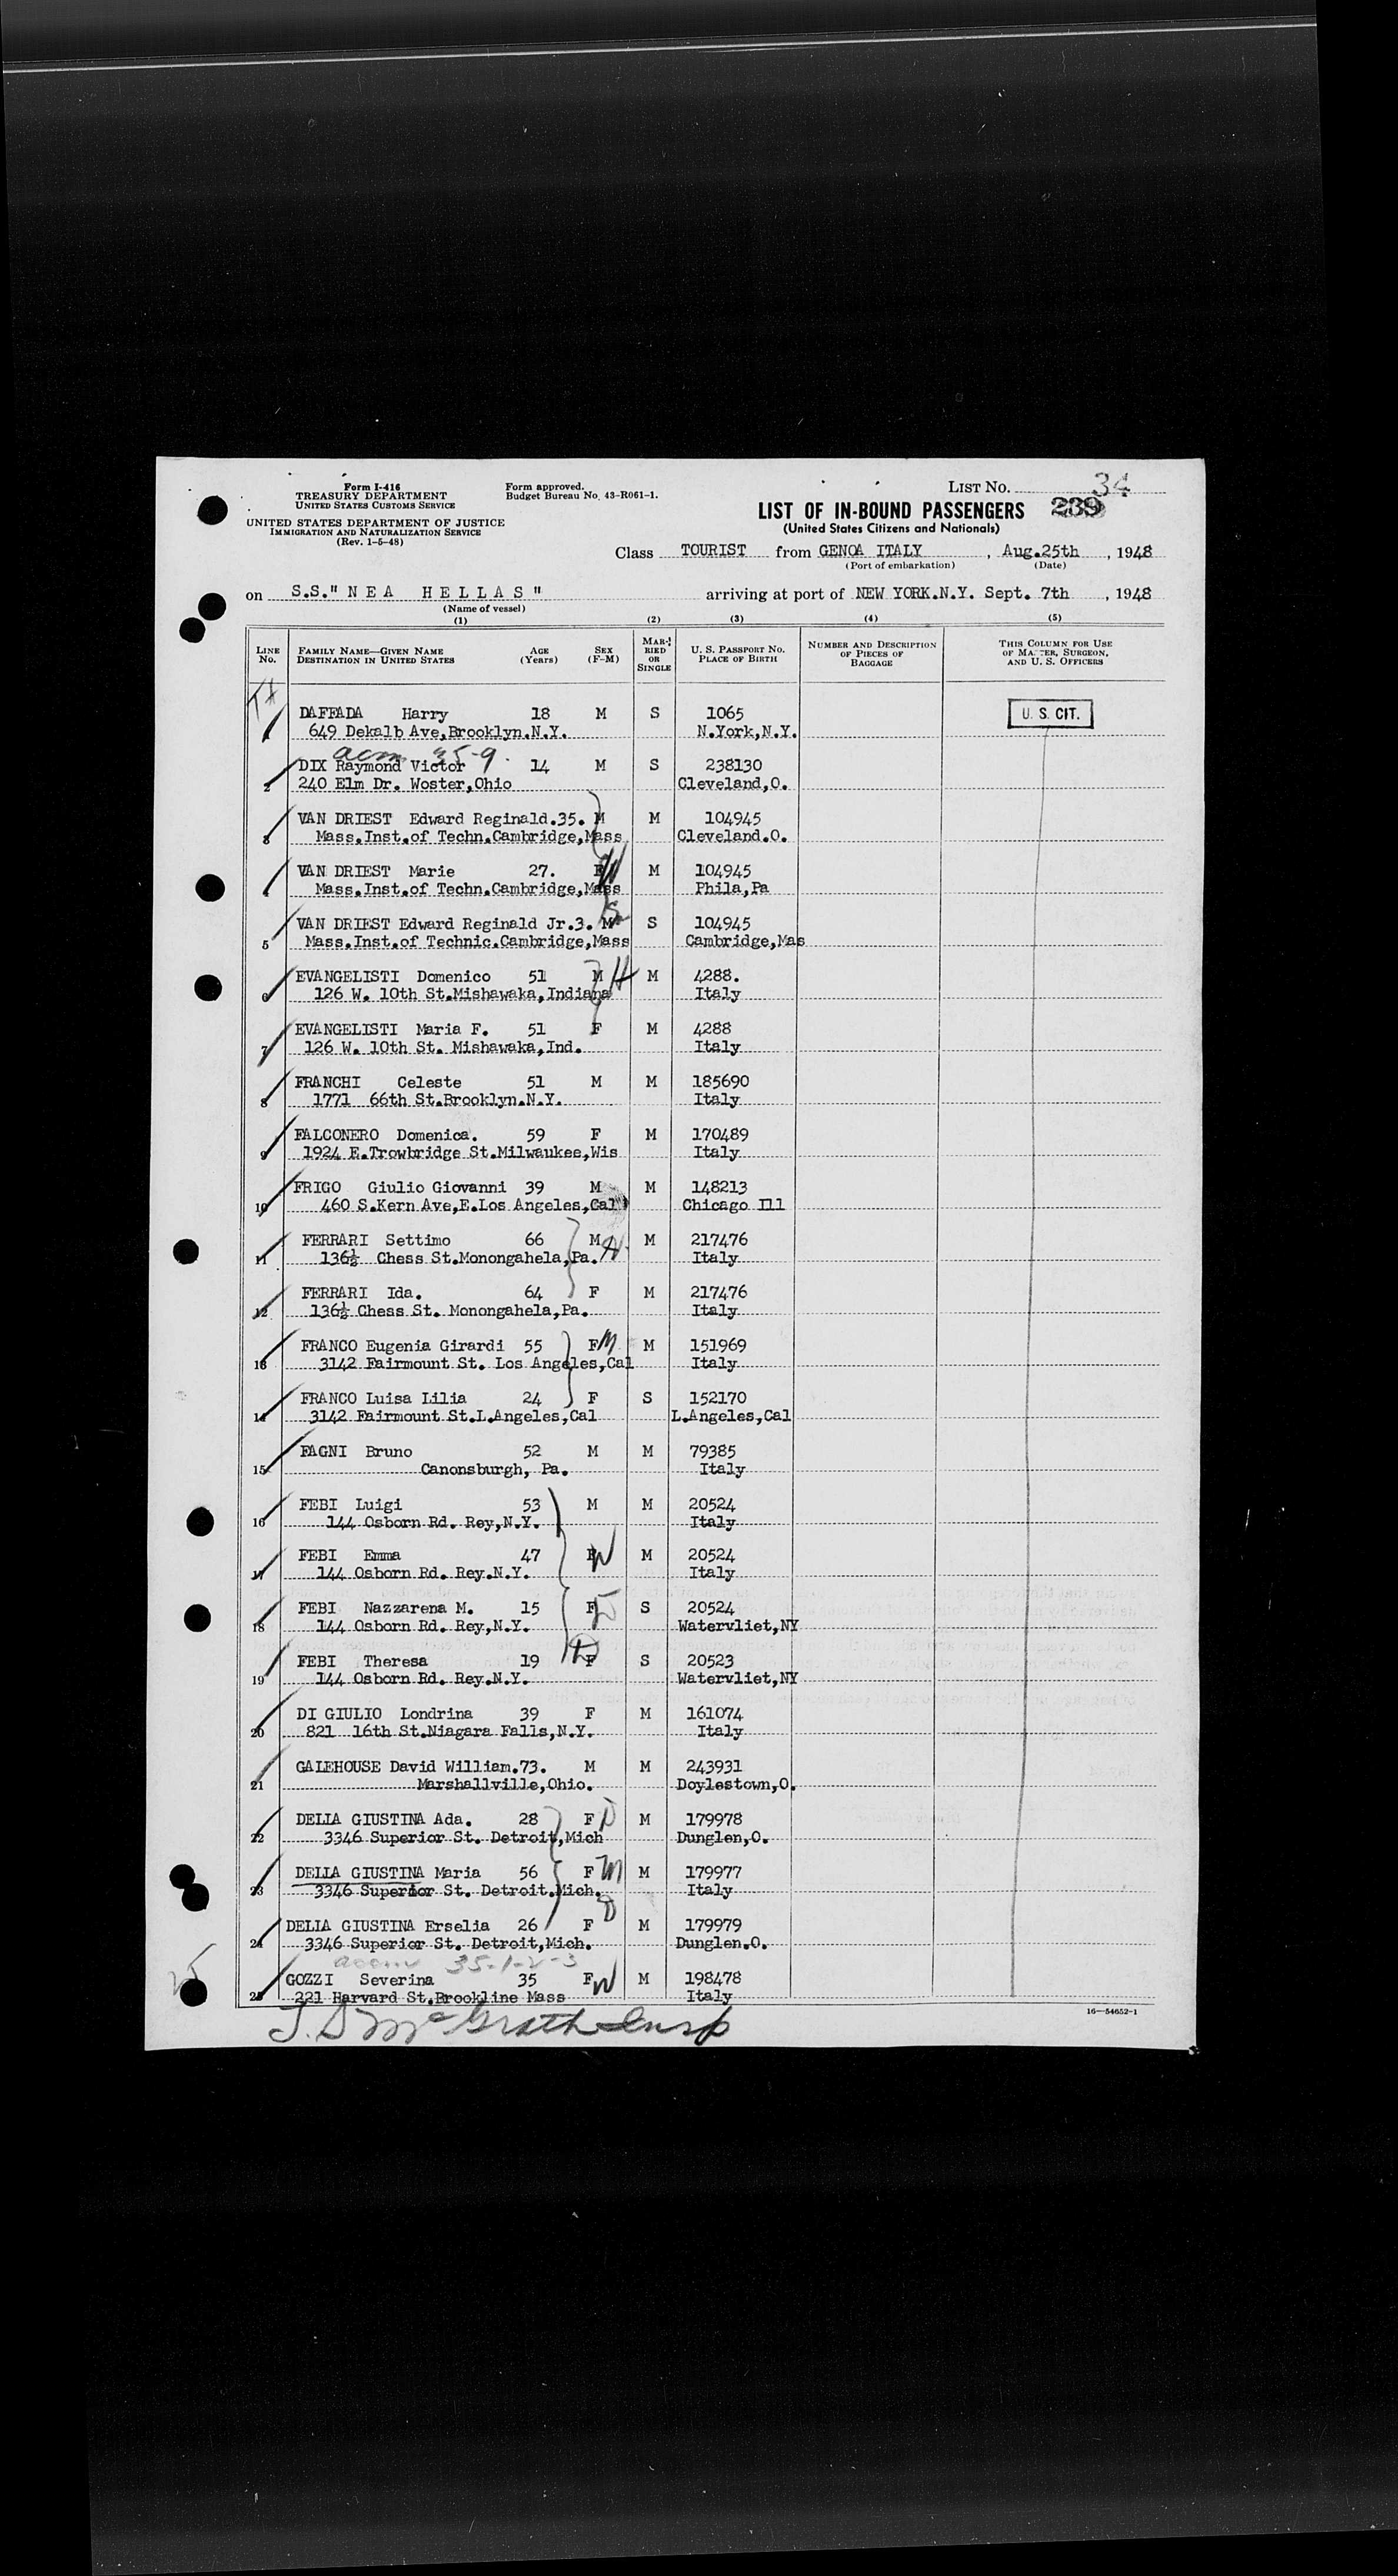 Form I-416
TREASURY DEPARTMENT
UNITED STATES CUSTOMS SERVICE
UNITED STATES DEPARTMENT OF JUSTICE
IMMIGRATION AND NATURALIZATION SERVICE
(Rev. 1-5-48)
Form approved.
Budget Bureau No. 43-R061-1.
LIST NO. 34
LIST OF IN-BOUND PASSENGERS 239
(United States Citizens and Nationals)
Class TOURIST from GENOA ITALY , Aug.25th , 1948
(Port of embarkation) (Date)
on S.S." N E A H E L L A S " arriving at port of NEW YORK.N.Y. Sept. 7th , 1948
(Name of vessel)
(1) (2) (3) (4) (5)
LINE No. FAMILY NAME—GIVEN NAME DESTINATION IN UNITED STATES AGE (Years) SEX (F-M) MARRIED OR SINGLE U. S. PASSPORT NO. PLACE OF BIRTH NUMBER AND DESCRIPTION OF PIECES OF BAGGAGE THIS COLUMN FOR USE OF MASTER, SURGEON, AND U. S. OFFICERS
DAFFADA Harry 18 M S 1065 U. S. CIT.
649 Dekalb Ave,Brooklyn.N.Y. N.York,N.Y.
35-9
DIX Raymond Victor 14 M S 238130
2 240 Elm Dr. Woster,Ohio Cleveland,O.
VAN DRIEST Edward Reginald.35. M M 104945
3 Mass.Inst.of Techn.Cambridge,Mass Cleveland.O.
VAN DRIEST Marie 27. F W M 104945
Mass.Inst.of Techn.Cambridge,Mass Phila,Pa
VAN DRIEST Edward Reginald Jr.3. M S 104945
5 Mass.Inst.of Technic.Cambridge,Mass Cambridge,Mas
EVANGELISTI Domenico 51 M H M 4288.
6 126 W. 10th St.Mishawaka,Indiana Italy
EVANGELISTI Maria F. 51 F M 4288
7 126 W. 10th St. Mishawaka,Ind. Italy
FRANCHI Celeste 51 M M 185690
8 1771 66th St.Brooklyn.N.Y. Italy
FALCONERO Domenica. 59 F M 170489
9 1924 E.Trowbridge St.Milwaukee,Wis Italy
FRIGO Giulio Giovanni 39 M M 148213
10 460 S.Kern Ave,E.Los Angeles,Cal Chicago Ill
FERRARI Settimo 66 M H M 217476
11 136½ Chess St.Monongahela,Pa. Italy
FERRARI Ida. 64 F M 217476
12 136½ Chess St. Monongahela,Pa. Italy
FRANCO Eugenia Girardi 55 F M M 151969
13 3142 Fairmount St. Los Angeles,Cal Italy
FRANCO Luisa Lilia 24 F S 152170
14 3142 Fairmount St.L.Angeles,Cal L.Angeles,Cal
FAGNI Bruno 52 M M 79385
15 Canonsburgh, Pa. Italy
FEBI Luigi 53 M M 20524
16 144 Osborn Rd. Rey,N.Y. Italy
FEBI Emma 47 F W M 20524
17 144 Osborn Rd. Rey.N.Y. Italy
FEBI Nazzarena M. 15 F D S 20524
18 144 Osborn Rd. Rey,N.Y. Watervliet,NY
FEBI Theresa 19 F S 20523
19 144 Osborn Rd. Rey.N.Y. Watervliet,NY
DI GIULIO Londrina 39 F M 161074
20 821 16th St.Niagara Falls,N.Y. Italy
GALEHOUSE David William.73. M M 243931
21 Marshallville,Ohio. Doylestown,O.
DELLA GIUSTINA Ada. 28 F D M 179978
22 3346 Superior St. Detroit,Mich Dunglen,O.
DELLA GIUSTINA Maria 56 F M M 179977
23 3346 Superior St. Detroit.Mich. Italy
DELIA GIUSTINA Erselia 26 F D M 179979
24 3346 Superior St. Detroit,Mich. Dunglen.O.
35-1-2-3
GOZZI Severina 35 F W M 198478
25 221 Harvard St.Brookline Mass Italy
16—54652-1
McGrath Insp